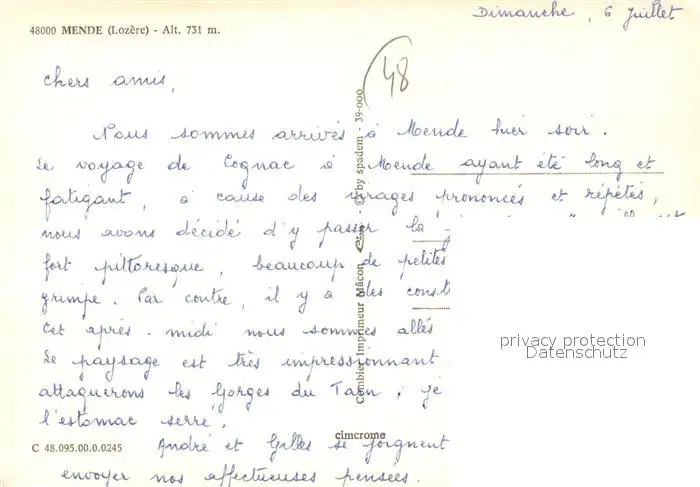 Dimanche, 6 Juillet
48000 MENDE (Lozère) - Alt. 731 m.
48
Chers amis,
Nous sommes arrivés à Mende hier soir.
Le voyage de Cognac à Mende ayant été long et
fatigant, à cause des virages prononcés et répétés,
nous avons décidé d'y passer la
fort pittoresque, beaucoup de petites
grimpe. Par contre, il y a des
Cet après-midi nous sommes allés
Le paysage est très impressionnant
attaquerons les Gorges du Tarn ; je
l'estomac serré.
André et Gilles se joignent
envoyer nos affectueuses pensées.
C 48.095.00.0.0245
cimcrome
Combier Imprimeur Mâcon by spadem - 39-000
privacy protection
Datenschutz